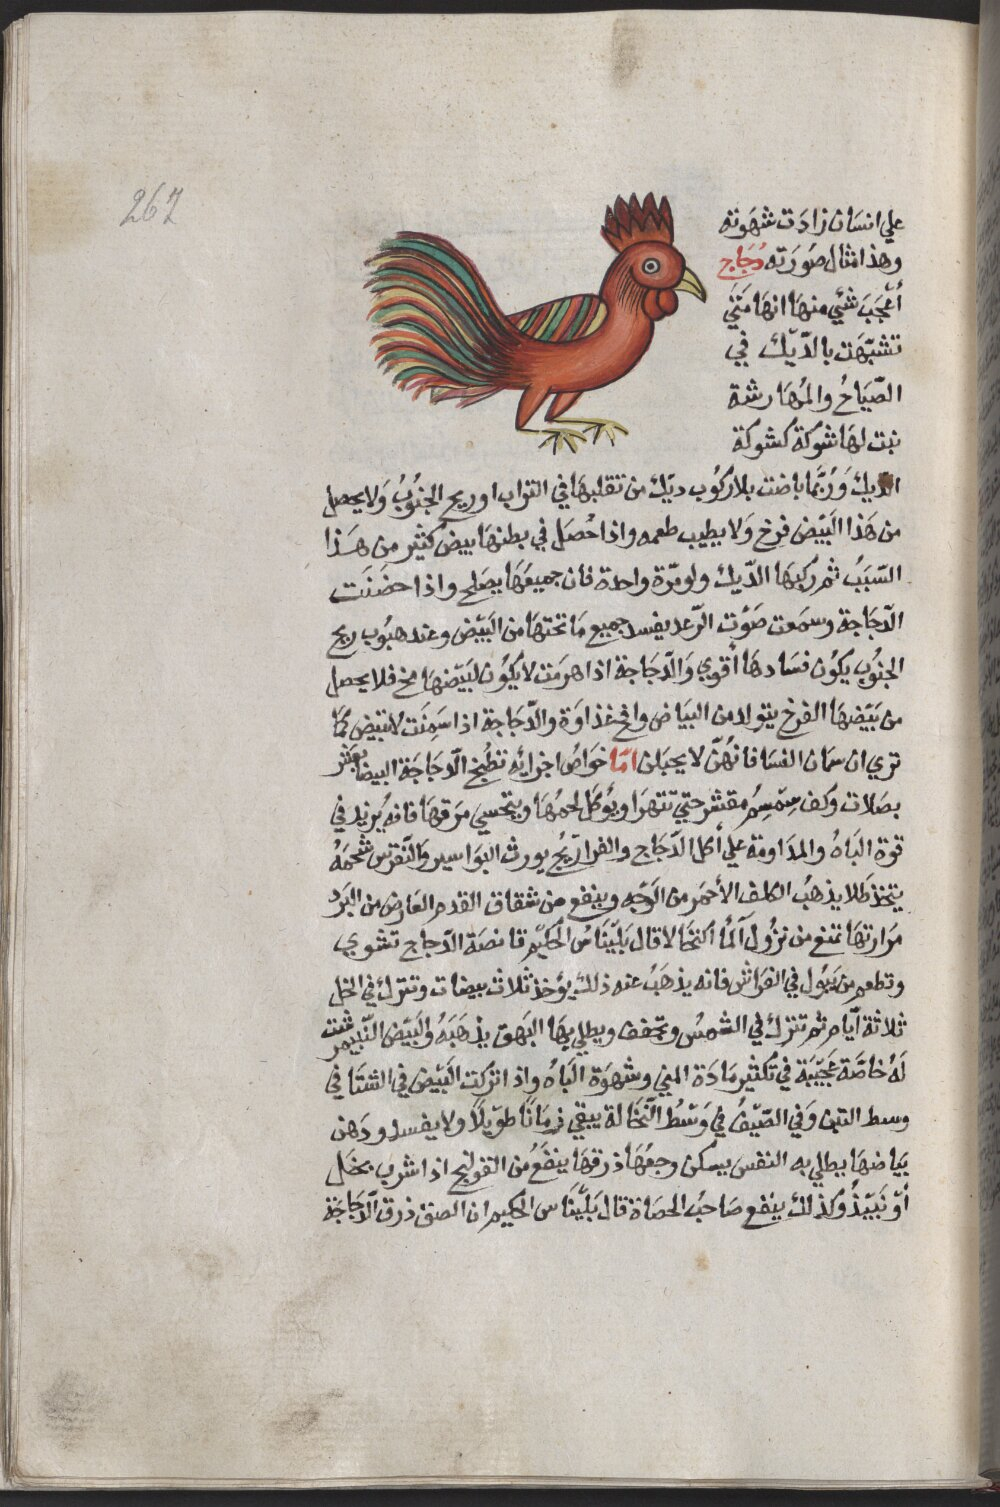 267
علي انسان زادت شهوته
وهذا مثال صورته دجاج
أعجب شئي منها انها متي
تشبهت بالدّيك في
الصّياح والمهارشة
نبت لها شوكة كشوكة
الديك وربّما باضت بلا ركوب ديك من تقلبها في التراب اوريح الجنوب ولا يحصل
من هذا البيض فرخ ولا يطيب طعمه واذا حصل في بطنها بيض كثير من هذا
السّبب ثم ركبها الدّيك ولو مرّة واحدة فان جميعها يصلح واذا حضنت
الدّجاجة وسمعت صوت الرّعد يفسد جميع ما تحتها من البيض وعند هبوب ريح
الجنوب يكون فسادها أقوي والدّجاجة اذا هرمت لا يكون لبيضها مخ فلا يحصل
من بيضها الفرخ يتولد من البياض والمخ غذاوة والدّجاجة اذا سمنت لا تبيض كما
تري ان سمان النسا فانهنّ لا يحبلن امّا خواص اجزائه تطبخ الدّجاجة البيضا بعشر
بصلات وكف سمسم مقشر حتي تتهرا ويوكل لحمها ويتحسي مرقها فانه يزيد في
قوة الباه والمداومة علي أكل الدّجاج والفراريج يورث البواسير والنّقرس شحمه
يتخذ طلا يذهب الكلف الأحمر من الوجه وينفع من شقاق القدم العارض من البرد
مرارتها تمنع من نزول آلما اكتحالا قال بليناس الحكيم قانصة الدّجاج تشوي
وتطعم من يبول في الفراش فانه يذهب عنه ذلك يؤخذ ثلاث بيضات وتترك في الخل
ثلاثة أيّام ثم تترك في الشمس وتجفف ويطلي بها البهق يذهبه والبيض النّيمرشت
له خاصّة عجيبة في تكثير مادة المني وشهوة الباه واذا تركت البيض في الشتا في
وسط التبن وفي الصّيف في وسط النّخالة يبقي زمانا طويلا ولا يفسد ودهن
بياضها يطلي به النفس يسكن وجعها ذرقها ينفع من القولنج اذا شرب بخل
أو نبيذ وكذلك ينفع صاحب الحصاة قال بليناس الحكيم ان الصق ذرق الدّجاجة